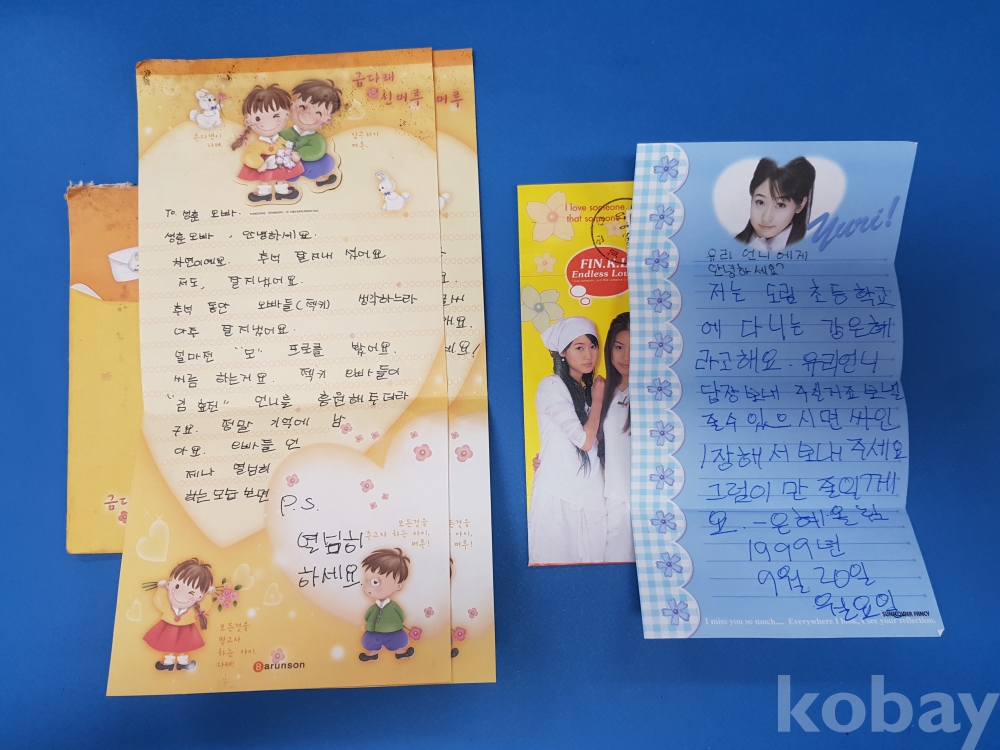 금다래
신머루
머루
To. 성훈 오빠.
성훈오빠, 안녕하세요.
차연이에요. 추석 잘지내 셨어요
저도, 잘지냈어요.
추석 동안 오빠들(젝키) 생각하느라
아주 잘지냈어요.
얼마전 "모" 프로를 봤어요.
씨름 하는거요. 젝키 오빠들이
"김 효진" 언니를 응원해 주더라
구요. 정말 기억에 남
아요. 오빠들 언
제나 열심히
하는 모습 보면
P.S.
열심히
하세요
모든것을
주고자 하는 아이,
머루!
모든것을
받고자
하는 아이
다래!
Barunson
I love someone
FIN.K.L
Endless Lo
Yuri!
유리 언니에게
안녕하세요?
저는 도림 초등학교
에 다니는 김은혜
라고해요. 유리언니
답장보내 주실거죠 보낼
줄수있으시면 싸인
1장해서보내주세요
그럼이만 줄일께
요. -은혜올림
1999년
9월 20일
월요일
SUNFLOWER FANCY
I miss you so much.... Everywhere I look, I see your reflection.
kobay